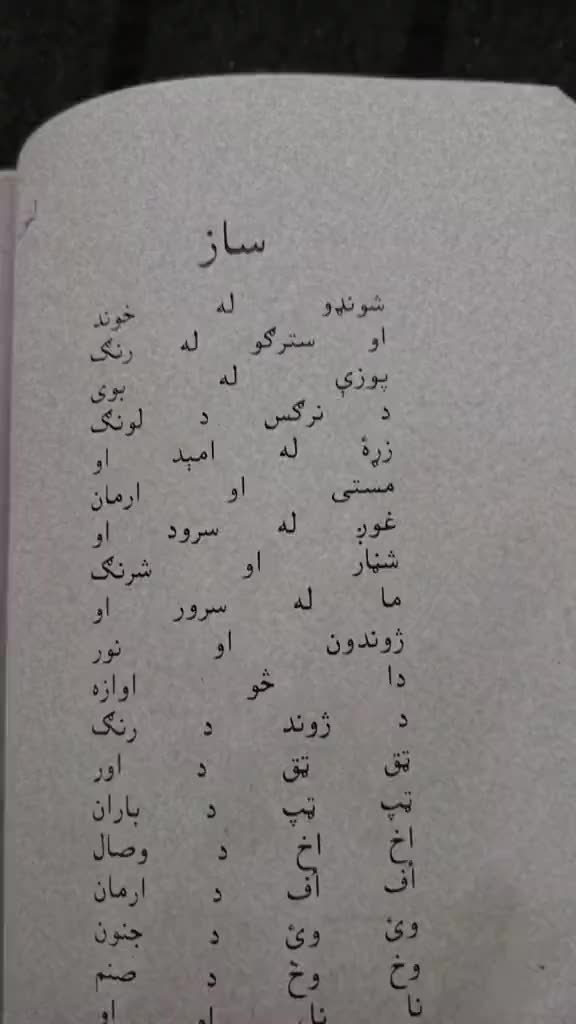 ساز
شونډو له خوند
او سترګو له رنګ
پوزې له بوی
د نرګس د لونګ
زړۀ له امېد او
مستی او ارمان
غوږ له سرود او
شنهار او شرنګ
ما له سرور او
ژوندون او نور
دا څو اوازه
د ژوند د رنګ
ټق ټق د اور
ټپ ټپ د باران
اخ اخ د وصال
أف أف د ارمان
وئ وئ د جنون
وخ وخ د صنم